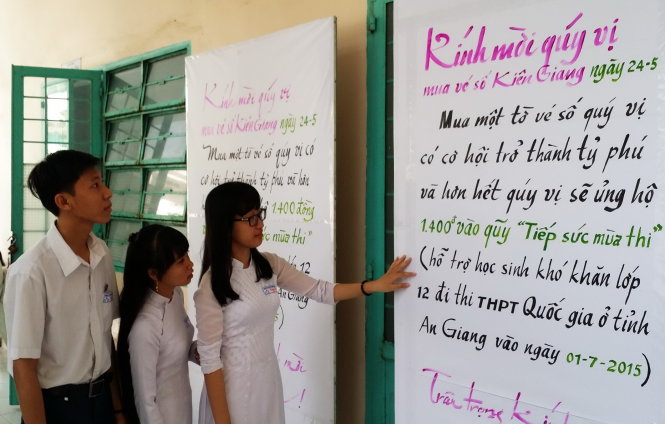 Kính mời quý vị
mua vé số Kiên Giang ngày 24-5
Mua một tờ vé số quý vị có
cơ hội trở thành tỷ phú
và hơn
1.400 đồng
mùa thi"
12
An Giang
)
mời
!
Kính mời quý vị
mua vé số Kiên Giang ngày 24-5
Mua một tờ vé số quý vị
có cơ hội trở thành tỷ phú
và hơn hết quý vị sẽ ủng hộ
1.400đ vào quỹ "Tiếp sức mùa thi"
(hỗ trợ học sinh khó khăn lớp
12 đi thi THPT Quốc gia ở tỉnh
An Giang vào ngày 01-7-2015)
Trân trọng kính